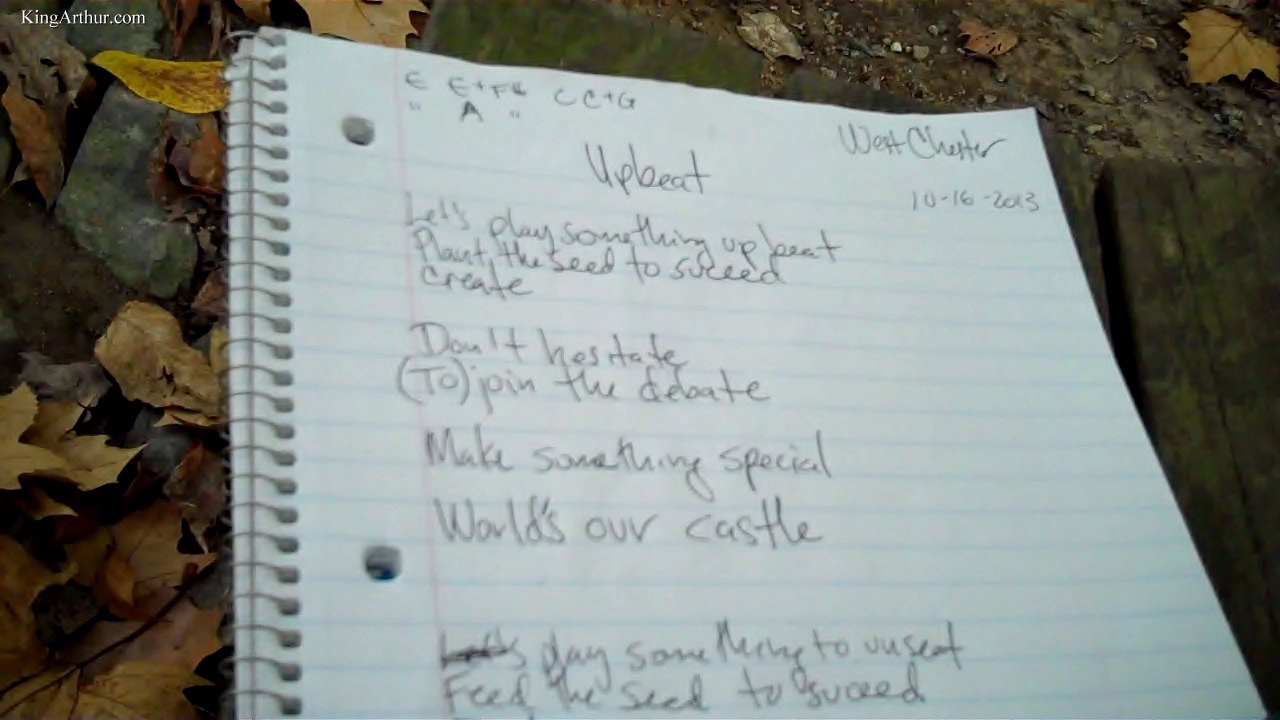 KingArthur.com
E E+F# C C+G
" A "
West Chester
Upbeat
10-16-2013
Let's play something up beat
Plant, the seed to suceed
Create
Don't hesitate
(To) join the debate
Make something special
World's our castle
play something to unseat
Feed the seed to suceed